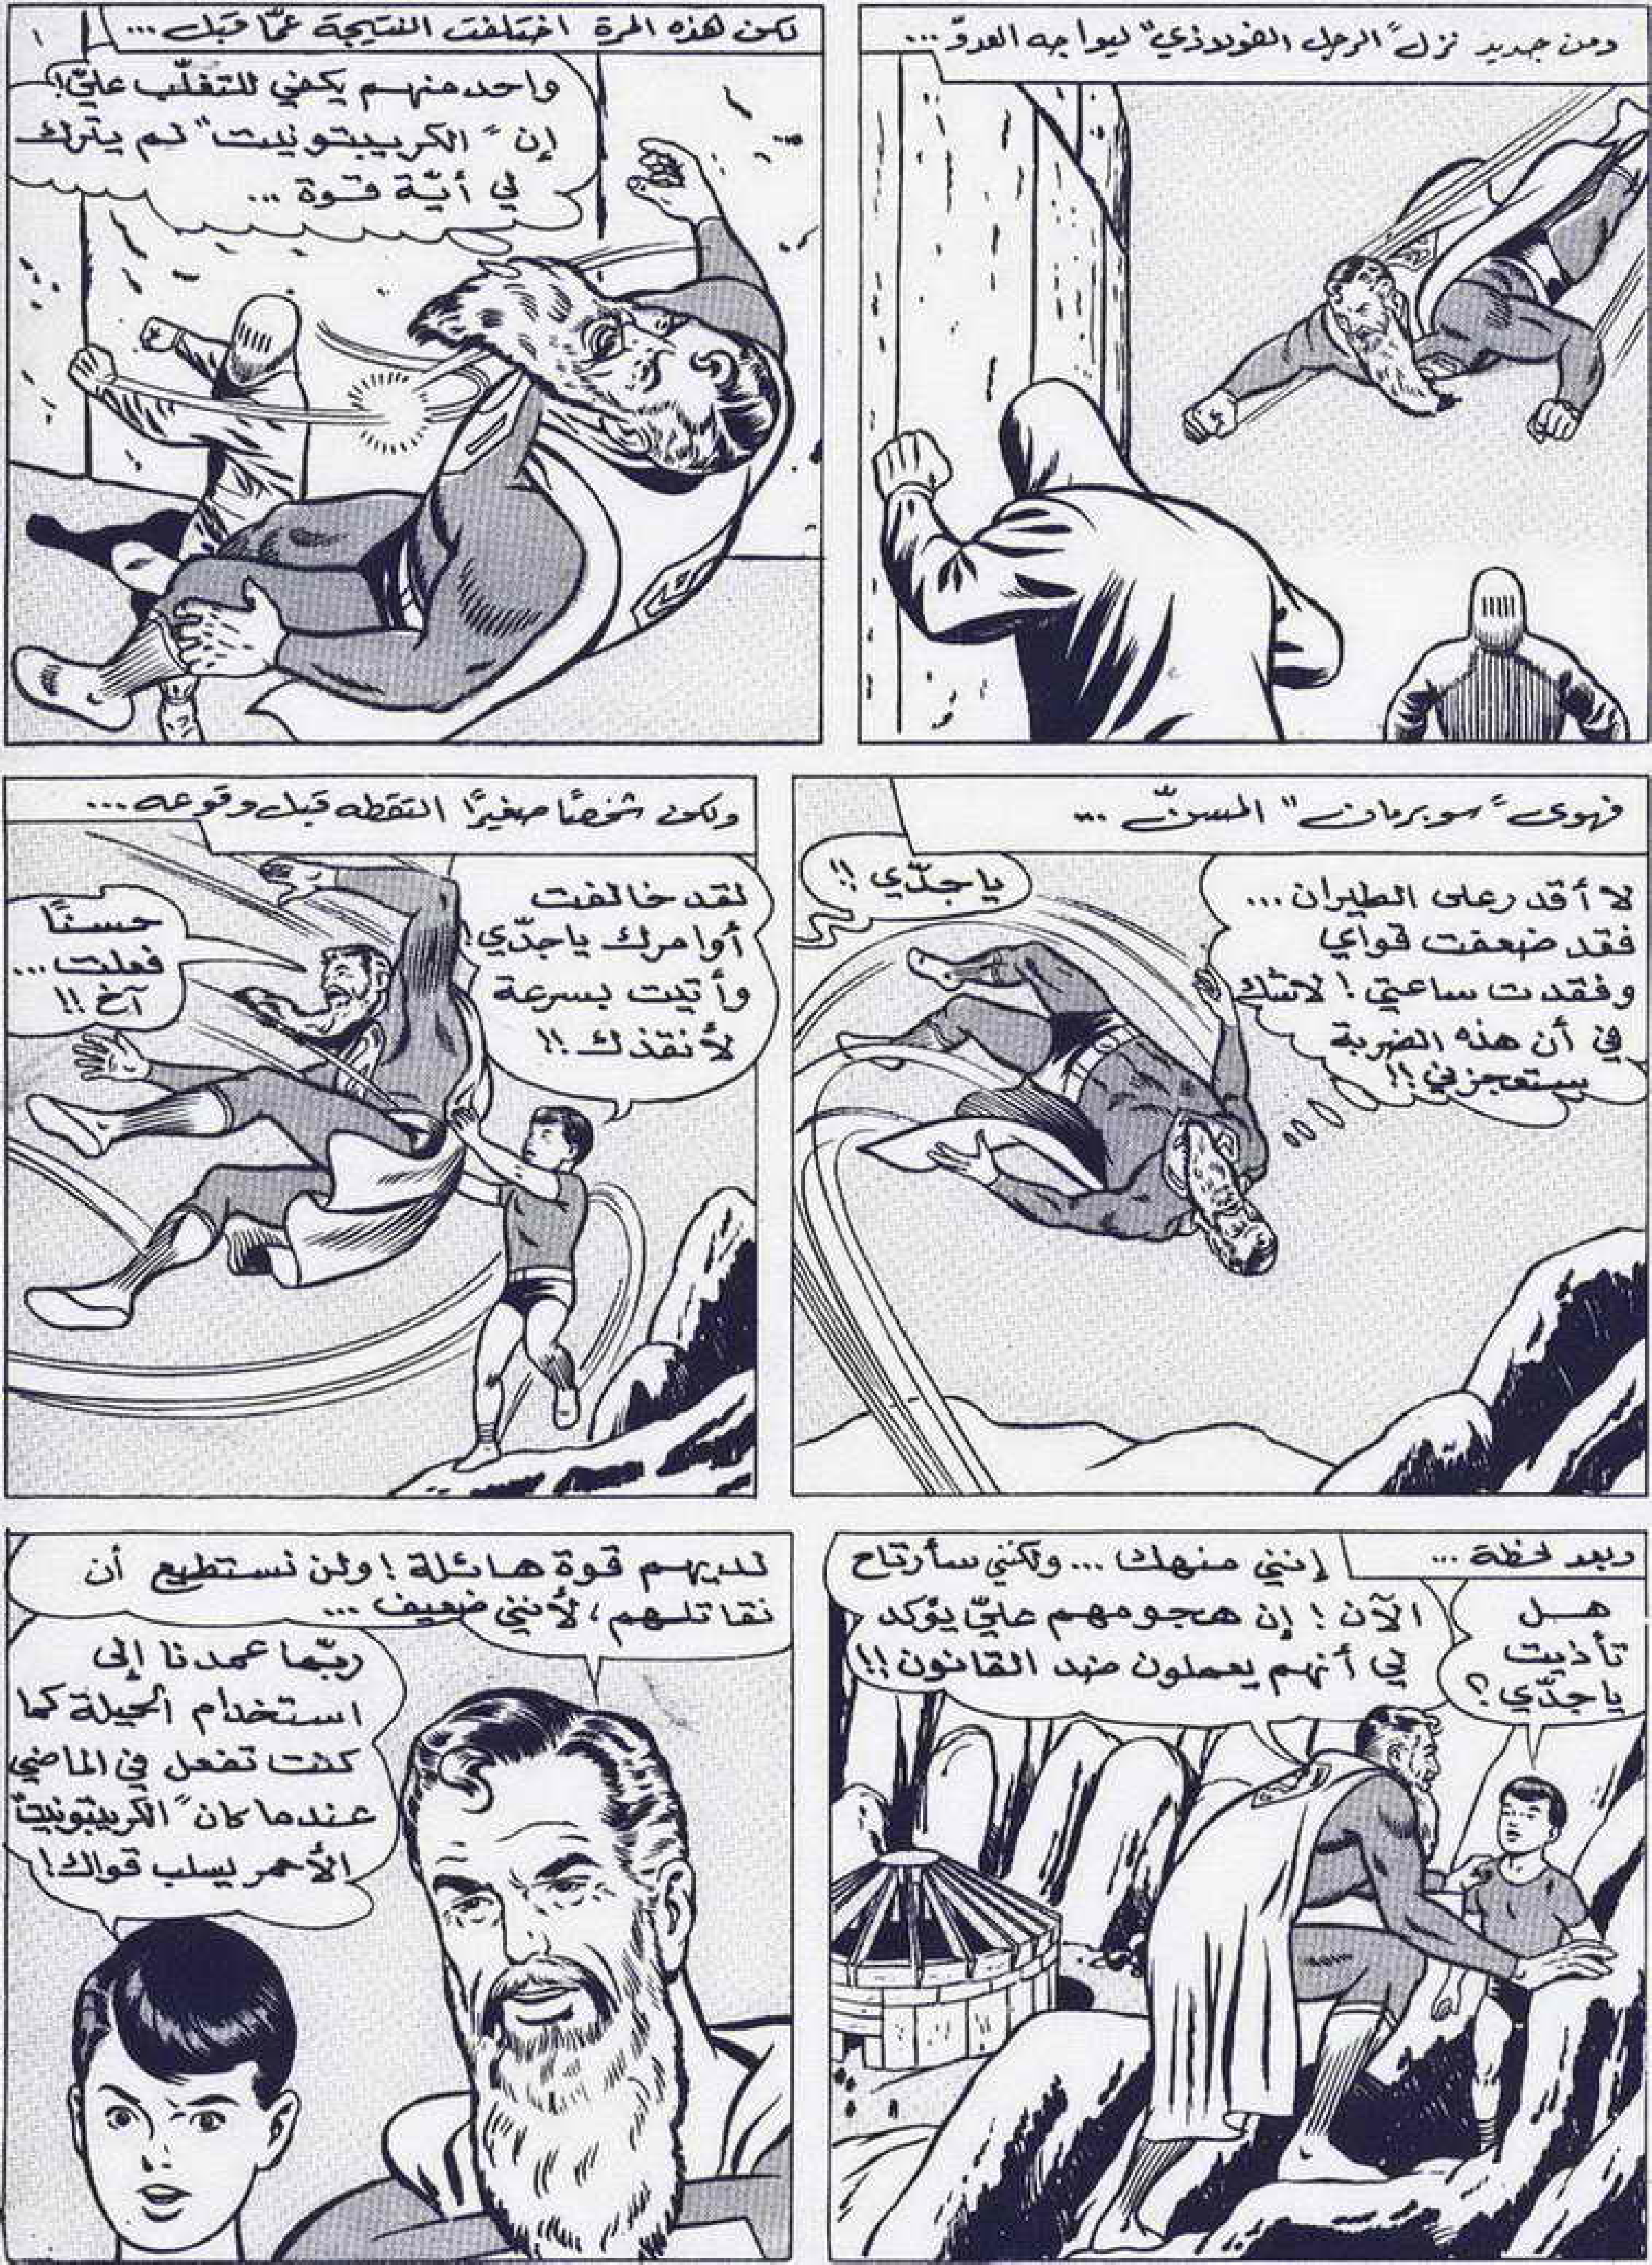 ومن جديد نزل "الرجل الفولاذي" ليواجه العدوّ ...
لكن هذه المرة اختلفت النتيجة عمّا قبل ...
واحد منهم يكفي للتغلّب عليّ!
إن "الكريبتونيت" لم يترك
لي أيّة قوة ...
فهوى "سوبرمان" المسنّ ...
لا أقدر على الطيران ...
فقد ضعفت قواي
وفقدت ساعتي! لاشك
في أن هذه الضربة
ستعجزني!!
ياجدّي!!
ولكن شخصًا صغيرًا التقطه قبل وقوعه ...
لقد خالفت
أوامرك ياجدّي!
وأتيت بسرعة
لأنقذك!!
حسنًا
فعلت ...
آخ!!
وبعد لحظة ...
هل
تأذيت
ياجدّي؟
إنني منهك ... ولكنني سأرتاح
الآن! إن هجومهم عليّ يؤكد
لي أنهم يعملون ضد القانون!!
لديهم قوة هائلة! ولن نستطيع أن
نقاتلهم، لأنني ضعيف ...
ربّما عمدنا إلى
استخدام الحيلة كما
كنت تفعل في الماضي
عندما كان "الكريبتونيت"
الأحمر يسلب قواك!